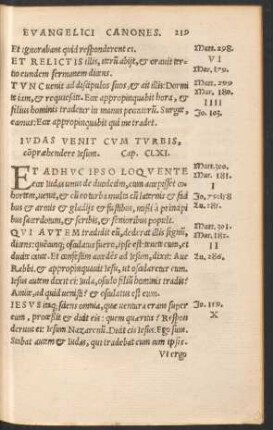 EVANGELICI CANONES. 219
Et ignorabant quid responderent ei.
ET RELICTIS illis, iterū abijt, & orauit ter-
tio eundem sermonem dicens.
TVNC uenit ad discipulos suos, & ait illis: Dormi
te iam, & requiescite. Ecce appropinquabit hora, &
filius hominis tradetur in manus peccatorū. Surgite,
eamus: Ecce appropinquabit qui me tradet.
IVDAS VENIT CVM TVRBIS,
cōprehendere Iesum. Cap. CLXI.
ET ADHVC IPSO LOQVENTE
Ecce Iudas unus de duodecim, cum accepisset co
hortem, uenit, & cū eo turba multa cū laternis & fusti
bus & armis & gladijs & fustibus, missi à principi
bus sacerdotum, & scribis, & senioribus populi.
QVI AVTEM tradidit eū, dederat illis signū,
dicens: quēcunq; osculatus fuero, ipse est: tenete eum, et
ducite caute. Et confestim accedēs ad Iesum, dixit: Aue
Rabbi. & appropinquauit Iesu, ut oscularetur eum.
Iesus autem dixit ei: Iuda, osculo filiū hominis tradis?
Amice, ad quid uenisti? & osculatus est eum.
IESVS itaq; sciens omnia, quæ uentura erant super
eum, processit & dicit eis: quem quæritis? Respon
derunt ei: Iesum Nazarenū. Dicit eis Iesus: Ego sum.
Stabat autem & Iudas, qui tradebat eum cum ipsis.
Vt ergo
Matt. 298.
VI
Matt. 299.
Mar. 180.
IIII
Io. 105.
Matt. 300.
Mar. 181.
I
Matt. 301.
Mar. 182.
II
Lu. 286.
X